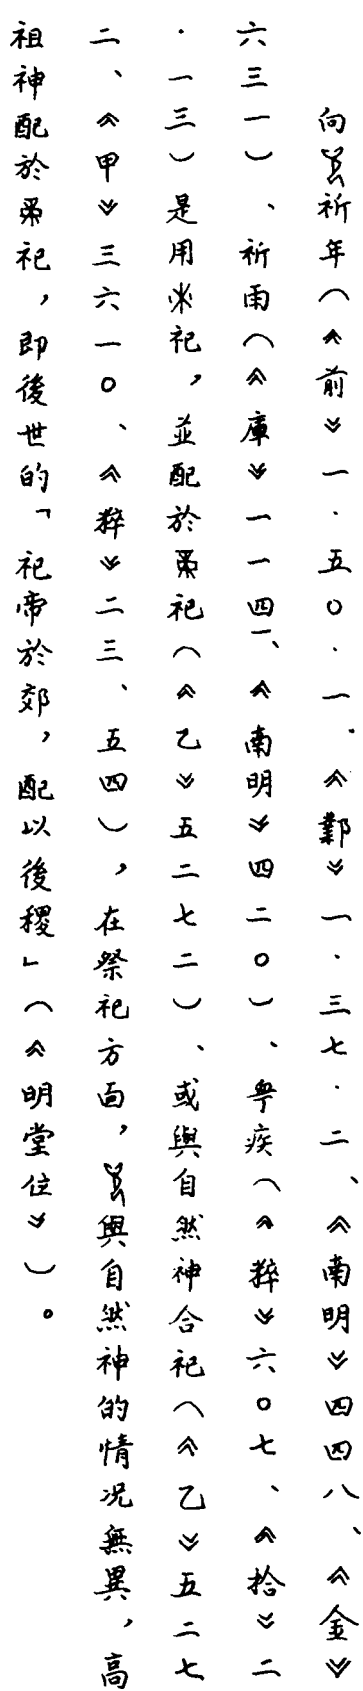 向祈年(《前》一·五〇·一、《鄴》一·三七·二、《南明》四四八、《金》
六三一)、祈雨(《庫》一一四一、《南明》四二〇)、甹疾(《粹》六〇七、《拾》二
·一三)是用祀,並配於祀(《乙》五二七二)、或與自然神合祀(《乙》五二七
二、《甲》三六一〇、《粹》二三、五四),在祭祀方面,與自然神的情况無異,高
祖神配於祀,即後世的「祀帝於郊,配以後稷」(《明堂位》)。